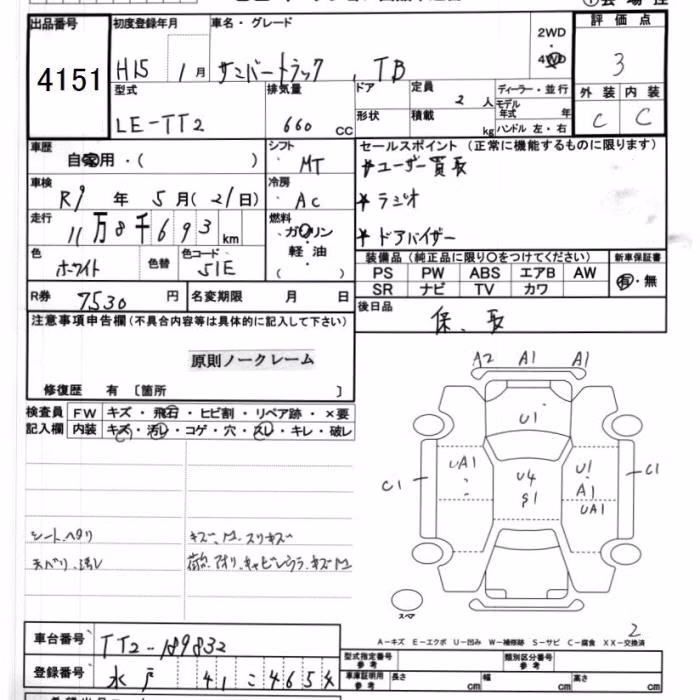 出品番号 初度登録年月 車名・グレード 2WD 評価点
4151 H15 1月 サンバートラック , TB 4WD 3
型式 排気量 ドア 定員 2人 ディーラー・並行 外装 内装
LE-TT2 660 cc 形状 積載 kg モデル年式 年 ハンドル 左・右 C C
車歴 自家用・( ) シフト MT セールスポイント (正常に機能するものに限ります)
車検 R7年 5月(21日) 冷房 AC *ユーザー買長
*ラジオ
走行 11万8千693km 燃料 ガソリン・軽油 ( ) *ドアバイザー
色 ホワイト 色替 色コード 51E 装備品 (純正品に限り○をつけてください) 新車保証書
PS PW ABS エアB AW 有・無
R券 7530円 名変期限 月 日 SR ナビ TV カワ
後日品 保、取
注意事項申告欄(不具合内容等は具体的に記入して下さい)
原則ノークレーム
修復歴 有 〔箇所 〕
検査員 FW キズ・飛石・ヒビ割・リペア跡・×要
記入欄 内装 キズ・汚レ・コゲ・穴・スレ・キレ・破レ
A2 A1 A1
U1
UA1 U4 U1
C1 S1 A1 C1
UA1
シートヘタリ
天バリ、汚レ
スペア
A-キズ E-エクボ U-凹み W-補修跡 S-サビ C-腐食 XX-交換済
2
車台番号 TT2-189832
登録番号 水戸 41 こ 4654
型式指定番号 参考 類別区分番号 参考
車庫証明用 参考 長さ cm 幅 cm 高さ cm